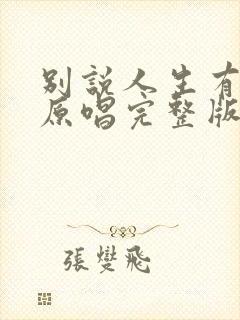 別說人生有
原唱完整版
張燮飛